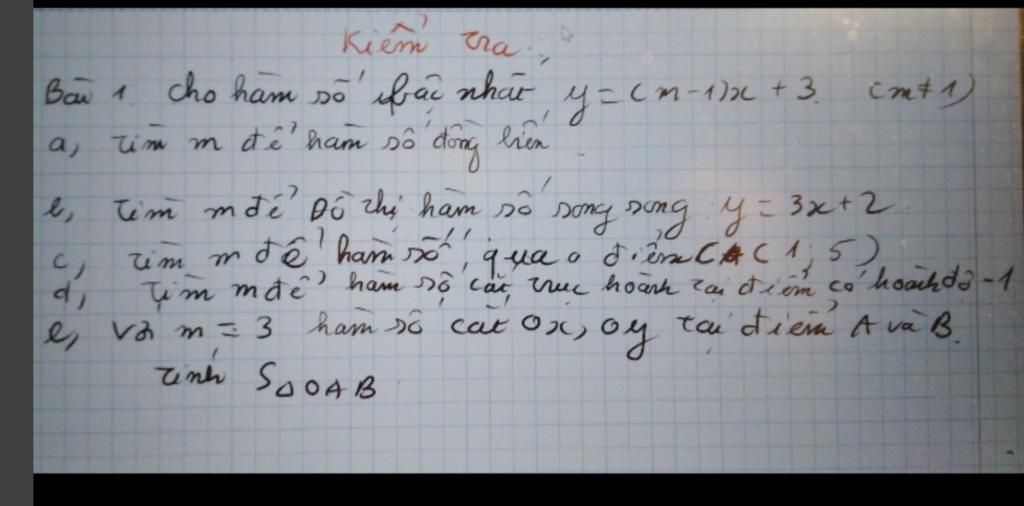 Kiểm tra:
Bài 1. Cho hàm số bậc nhất y = (m-1)x + 3. (m ≠ 1)
a, Tìm m để hàm số đồng biến
b, Tìm m để Đồ thị hàm số song song y = 3x + 2
c, Tìm m để hàm số qua điểm A (1; 5)
d, Tìm m để hàm số cắt trục hoành tại điểm có hoành độ -1
e, Với m = 3 hàm số cắt Ox, Oy tại điểm A và B.
Tính S△OAB